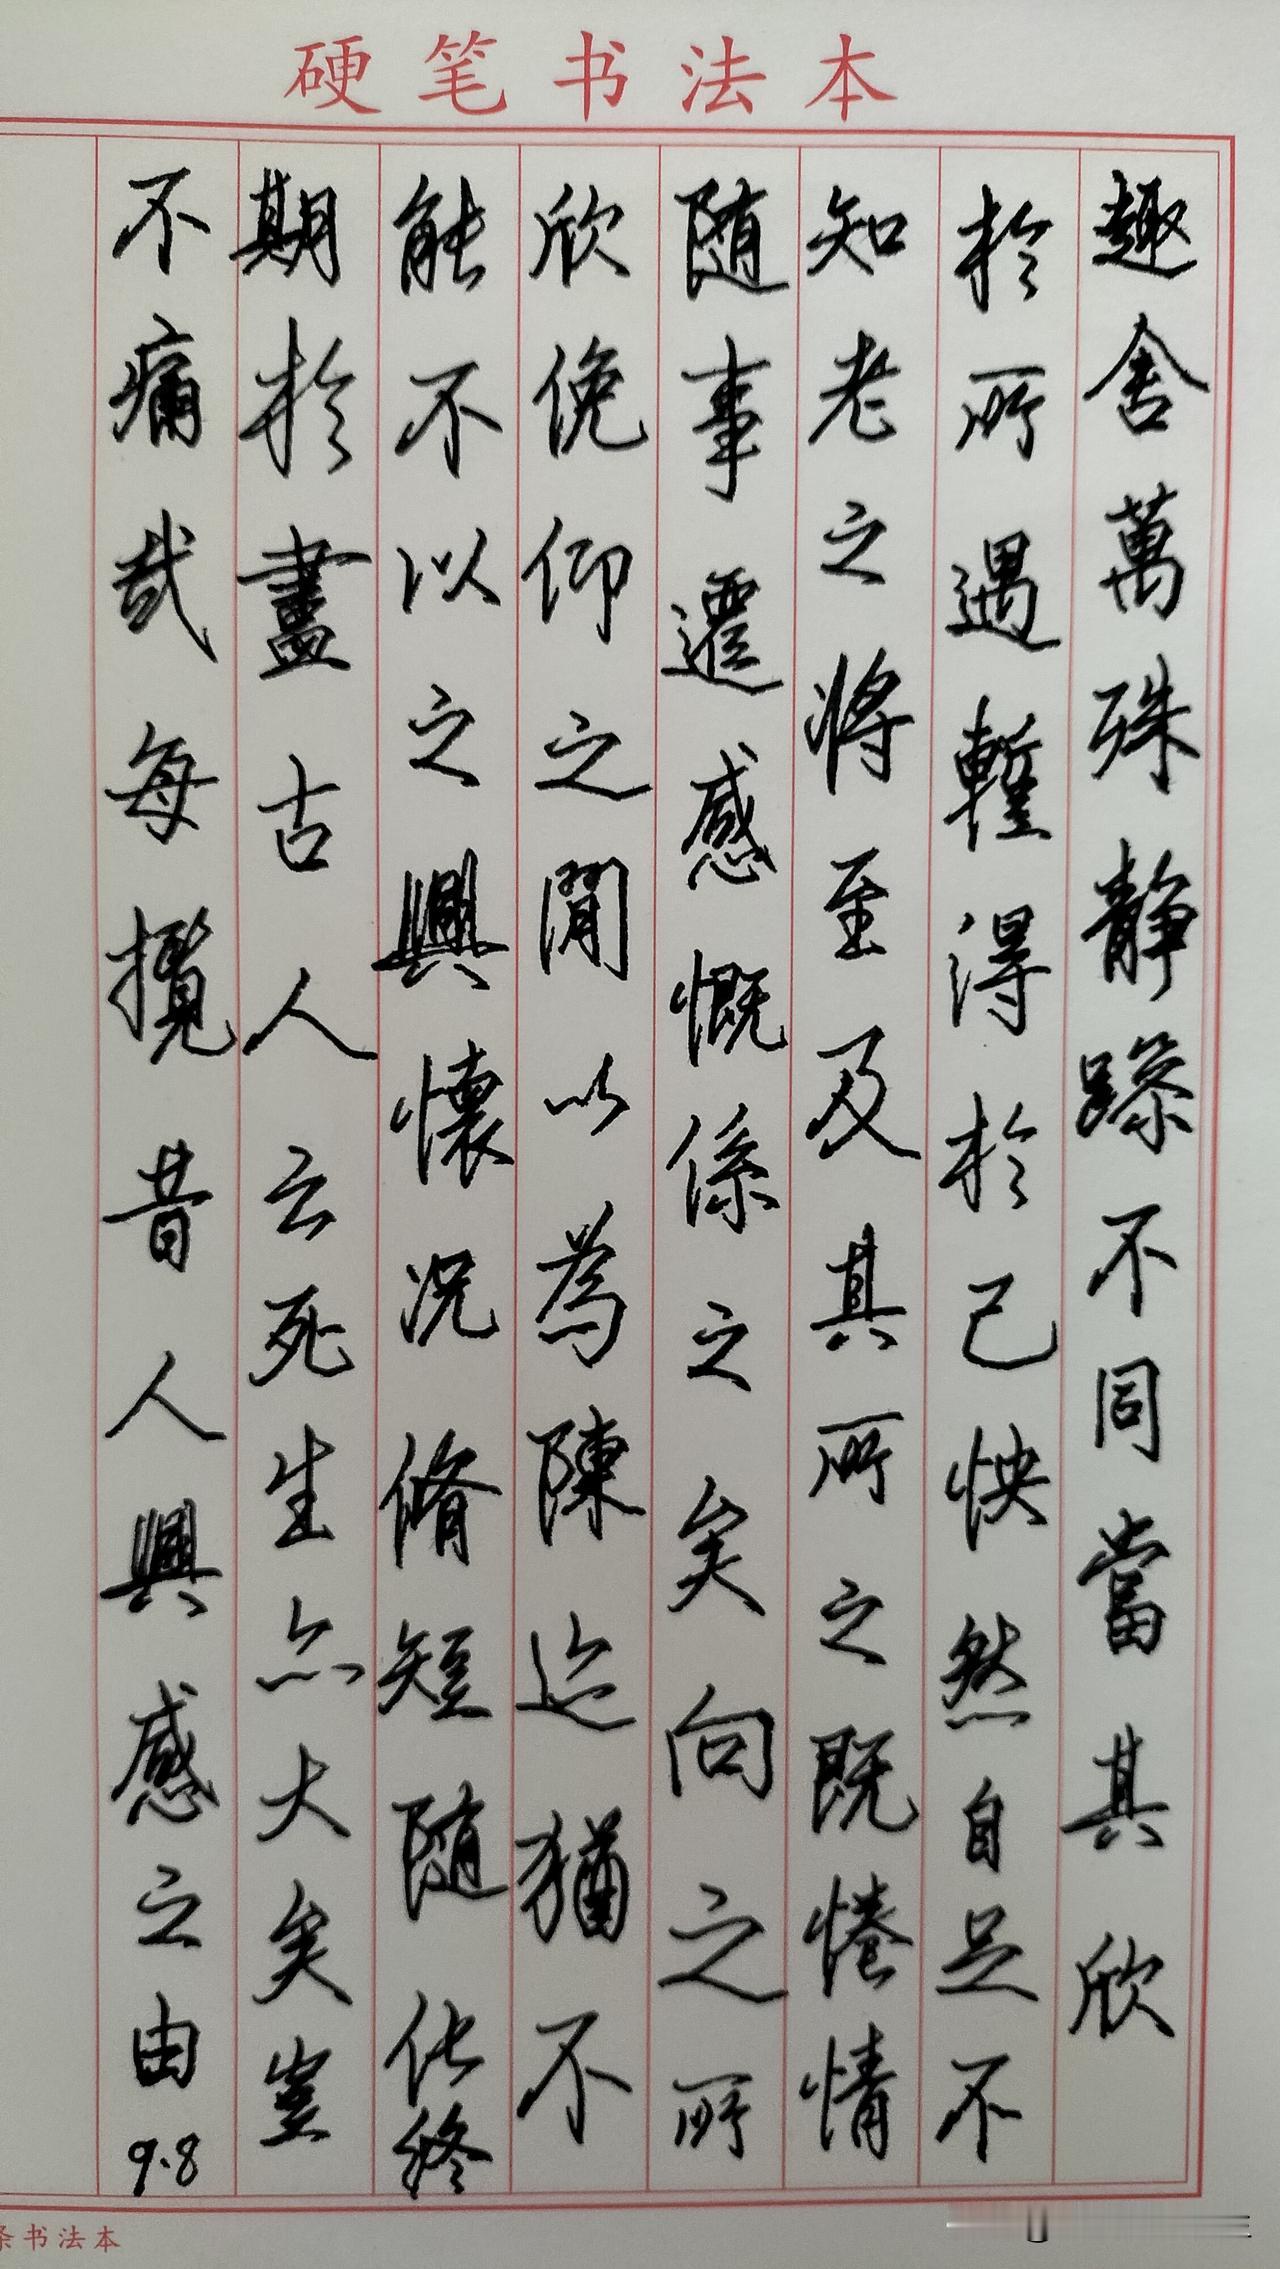 硬笔书法本
趣舍萬殊静躁不同當其欣
於所遇暫得於己怏然自足不
知老之将至及其所之既惓情
随事遷感慨係之矣向之所
欣俛仰之閒以為陳迹猶不
能不以之興懷况脩短随化終
期於盡古人云死生亦大矣豈
不痛哉每攬昔人興感之由
9.8
条书法本